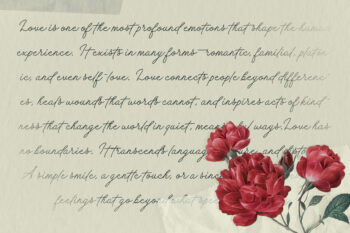 Love is one of the most profound emotions that shape the human
experience. It exists in many forms—romantic, familial, platon
ic, and even self-love. Love connects people beyond differenc
es, heals wounds that words cannot, and inspires acts of kind
ness that change the world in quiet, ways. Love has
no boundaries. It transcends
A simple smile, a gentle touch, or a
feelings that go beyond what